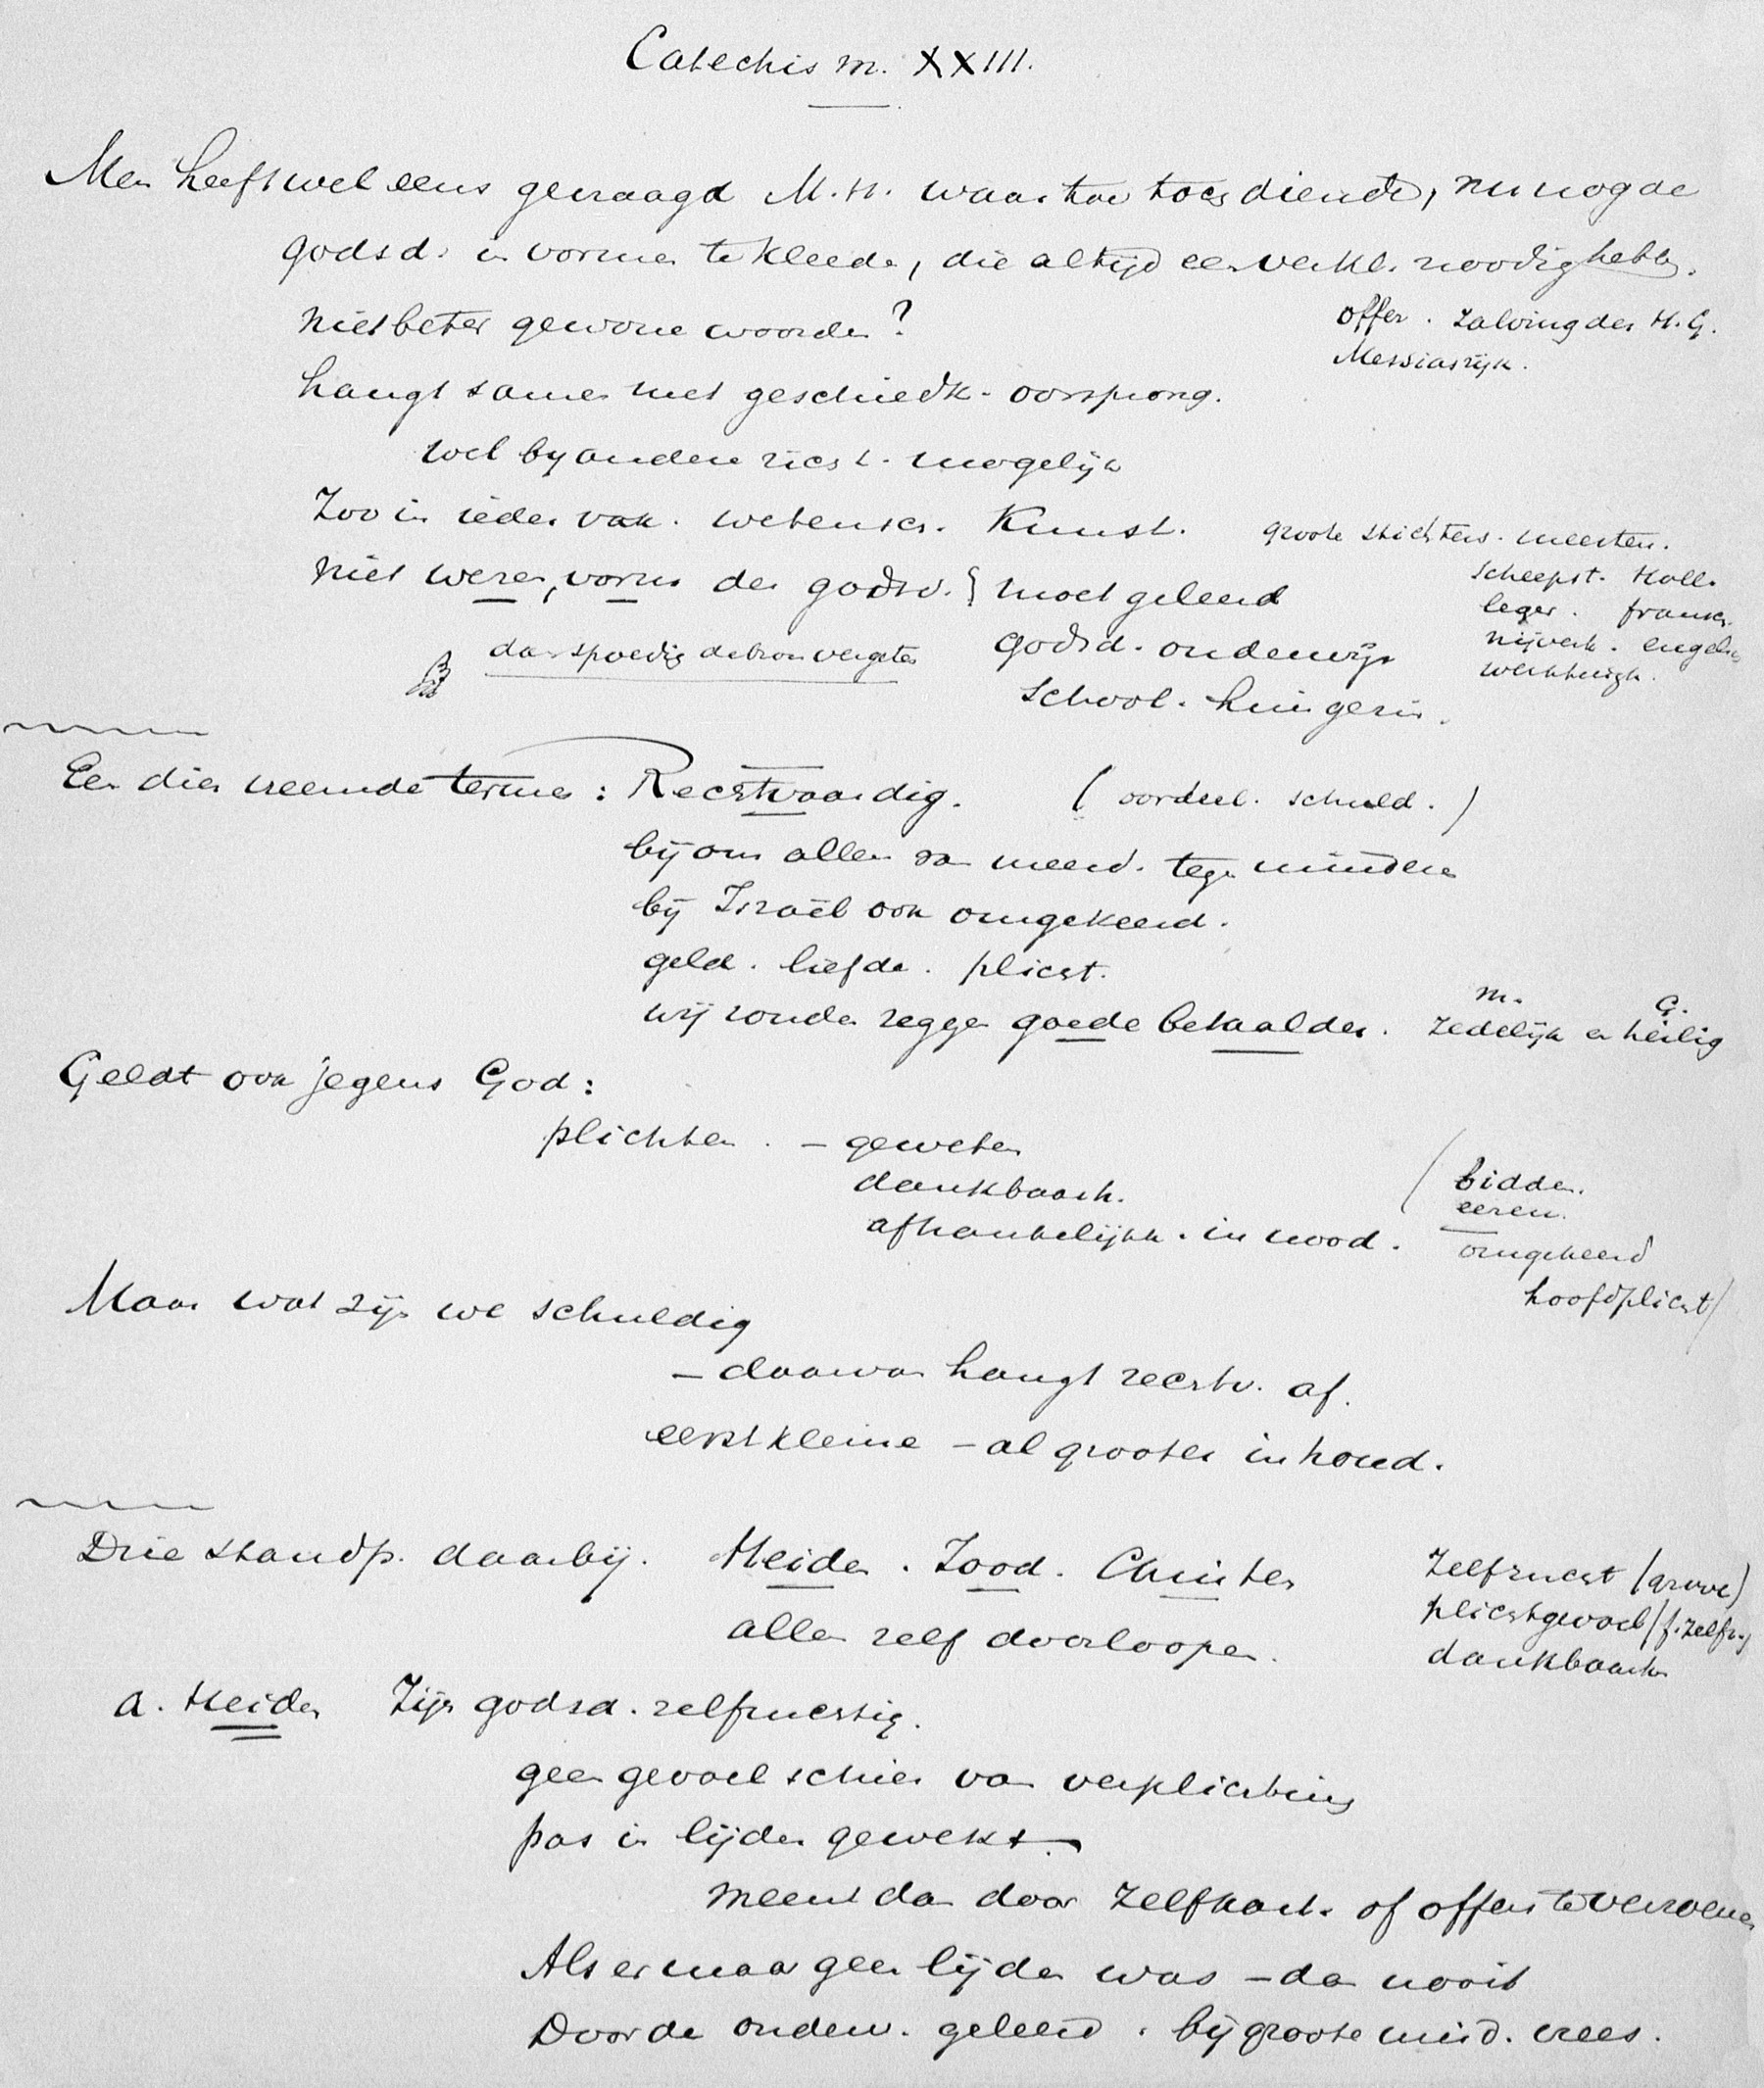 Catechism. XXIII.
Men heeft wel eens gevraagd M.H. waartoe toch diende, nu nog de
godsd. in vormen te kleeden, die altijd een verkl. noodig hebben.
niet beter gewone woorden?
offer. zalving des H.G.
Messiasrijk.
hangt samen met geschiedk. oorsprong.
wel bij andere richt. mogelijk
Zoo in ieder vak. wetensch. Kunst. groote stichters. meesters.
scheepst. Holl.
niet wezen, vorm der godsd. moet geleerd
leger. fransch.
nijverh. engelsch
dan spoedig de bron vergeten
godsd. onderwijs
werktuigk.
school. huisgezin.
Een dier vreemde termen: Rechtvaardig. (oordeel. schuld.)
bij ons alleen van meerd. tegen mindere
bij Israël ook omgekeerd.
geld. liefde. plicht.
m. G.
wij zouden zeggen goede betaalder. zedelijk en heilig
Geldt ook jegens God:
plichten. - geweten
dankbaarh. (bidden.
eeren.
afhankelijkh. in nood. omgekeerd
hoofdplicht)
Maar wat zijn we schuldig
- daarvan hangt rechtv. af.
eerst kleine - al grooter inhoud.
Drie standp. daarbij. Heiden. Jood. Christen
Zelfzucht (grove)
plichtgevoel (f. zelfz.)
allen zelf doorloopen. dankbaarh
a. Heiden Zijn godsd. zelfzuchtig.
geen gevoel schier van verplichting
pas in lijden gewekt.
meent dan door zelfkast. of offers te verzoenen
Als er maar geen lijden was - dan nooit
Door de ouden. geleerd. bij groote misd. vrees.